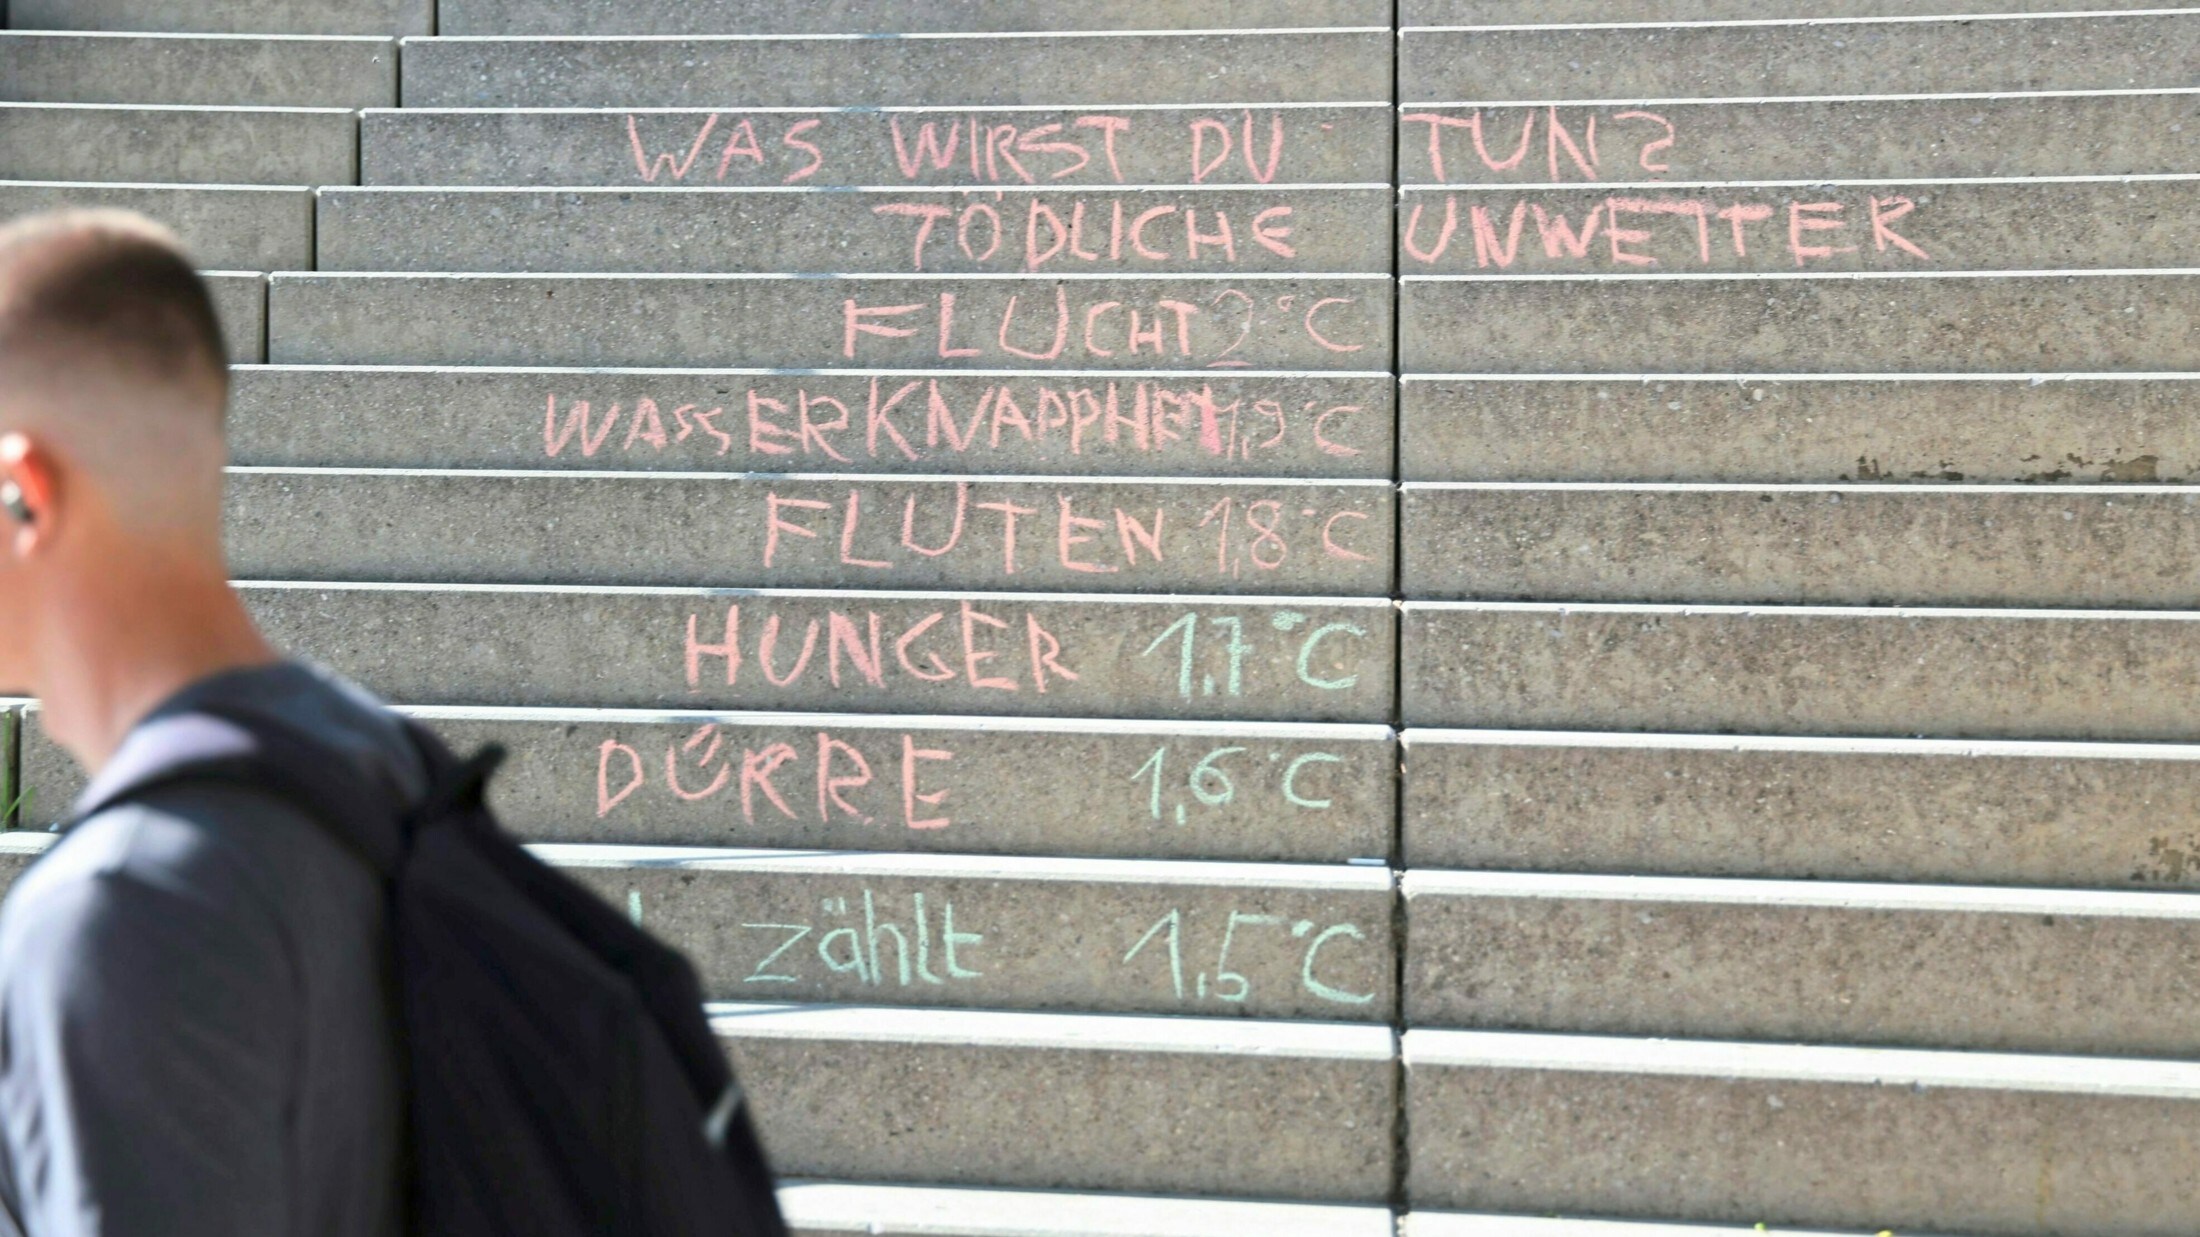 WAS WIRST DU TUN?
TÖDLICHE UNWETTER
FLUCHT 2°C
WASSERKNAPPHEIT 1,9°C
FLUTEN 1,8°C
HUNGER 1,7°C
DÜRRE 1,6°C
zählt 1,5°C